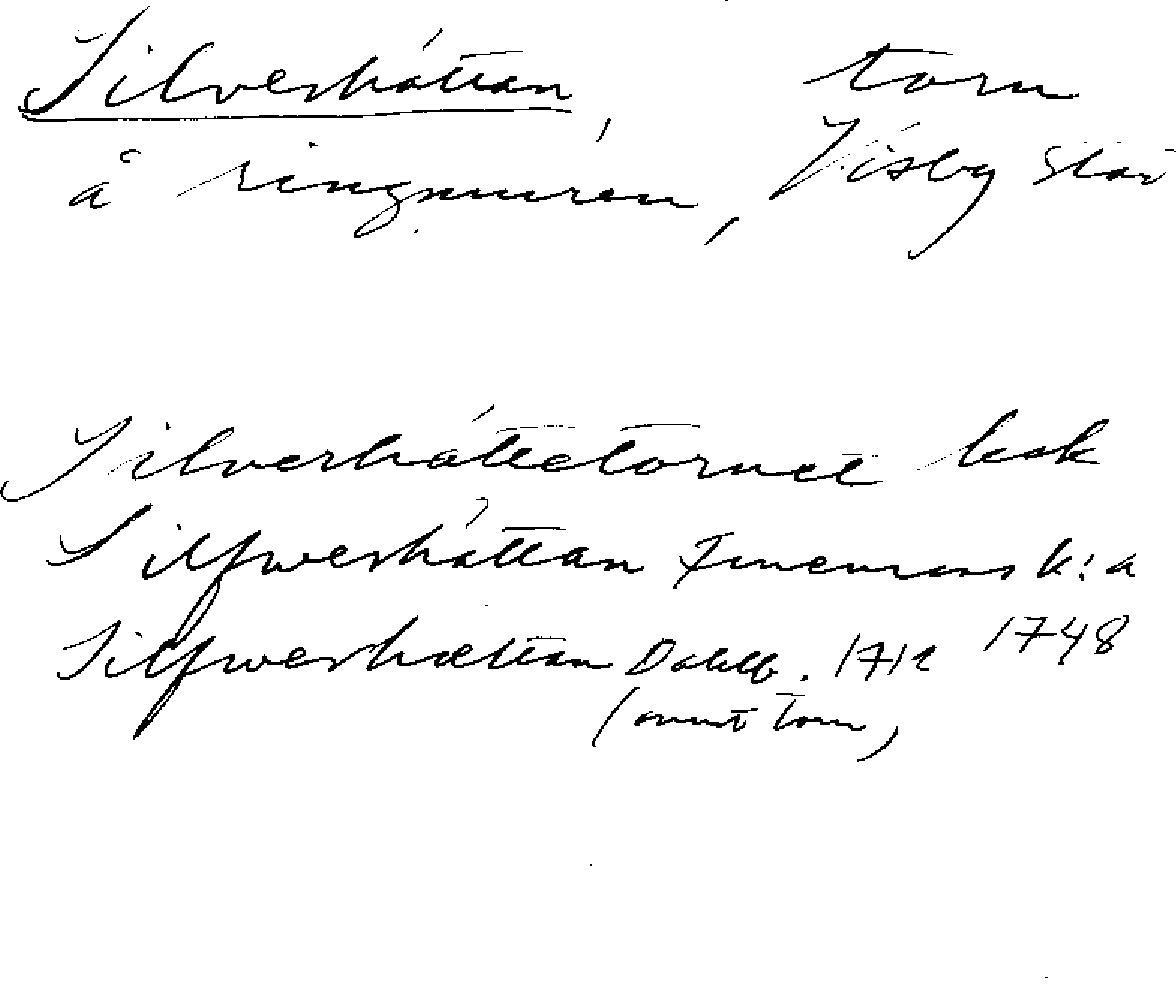 Silverháttan, torn
å ringmuren, Visby stad
Silverháttetornet
Silfwerháttan k: a
Silfwerhættan Dahlb. 1712 1748
(runt torn)